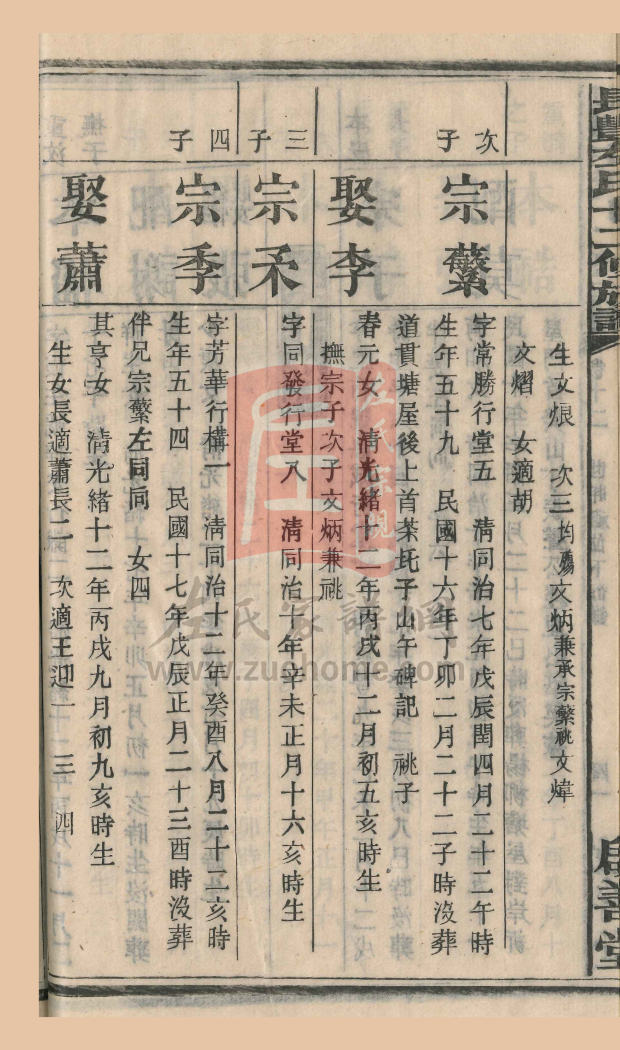 長豐左氏十二修族譜
啟善堂
生文烺 次三均殤 文炳兼承宗蘩祧 文煒
文熠 女適胡
次子
宗蘩
字常勝行堂五 清同治七年戊辰閏四月二十二午時
生年五十九 民國十六年丁卯二月二十二子時沒葬
道貫塘屋後上首茶圫子山午碑記 祧子
娶李
春元女 清光緒十二年丙戌十二月初五亥時生
撫宗子次子文炳兼祧
三子
宗禾
字同發行堂八 清同治十年辛未正月十六亥時生
四子
宗季
字芳華行構一 清同治十二年癸酉八月二十二亥時
生年五十四 民國十七年戊辰正月二十三酉時沒葬
伴兄宗蘩左同向 女四
娶蕭
其亨女 清光緒十二年丙戌九月初九亥時生
生女長適蕭長二 次適王迎一 三 四
左氏家譜網
www.zuohome.com